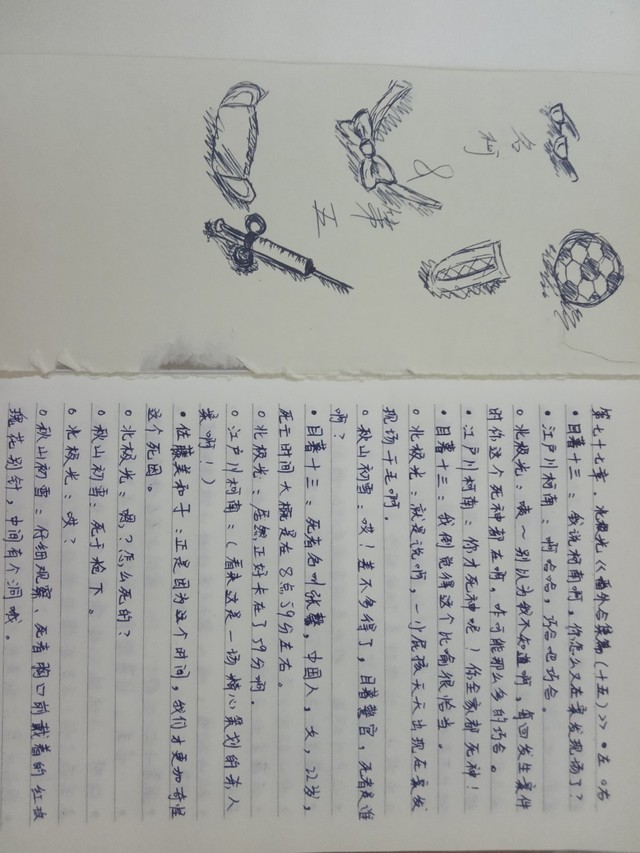 名柯
&
第五
第七十七章,北极光《番外合集篇(十五)》 •左 ○右
•目暮十三:我说柯南啊,你怎么又在案发现场了?
•江户川柯南:啊哈哈,巧合吧巧合。
○北极光:噢~别以为我不知道啊,每回发生案件
时你这个死神都在啊。咋可能那么多的巧合。
•江户川柯南:你才死神呢!你全家都死神!
•目暮十三:我倒觉得这个比喻很恰当。
○北极光:就是说啊,一小屁孩天天出现在案发
现场干毛啊。
○秋山初雪:哎!差不多得了,目暮警官,死者是谁
啊?
•目暮十三:死者名叫张馨,中国人,女,22岁,
死亡时间大概是在8点59分左右。
○北极光:居然正好卡在了59分啊。
○江户川柯南:(看来这是一场精心策划的杀人
案啊!)
•佐藤美和子:正是因为这个时间,我们才更加奇怪
这个死因。
○北极光:嗯?怎么死的?
•秋山初雪:死于枪下。
○北极光:哎?
○秋山初雪:仔细观察、死者胸口前戴着的红玫
瑰花别针,中间有个洞哦。